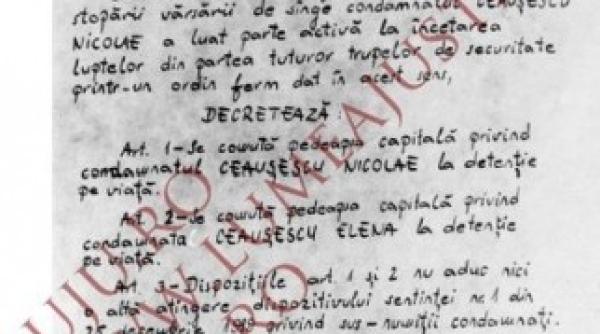 stopării vărsării de sînge condamnatul CEAUŞESCU
NICOLAE a luat parte activă la încetarea
luptelor din partea tuturor trupelor de securitate
printr-un ordin ferm dat în acest sens,
DECRETEAZĂ:
Art. 1-Se comută pedeapsa capitală privind
condamnatul CEAUŞESCU NICOLAE la detenţie
pe viaţă.
Art. 2-Se comută pedeapsa capitală privind
condamnata CEAUŞESCU ELENA la detenţie
pe viaţă.
Art. 3-Dispoziţiile art. 1 şi 2 nu aduc nici
o altă atingere dispozitivului sentinţei nr. 1 din
25 decembrie 1989 privind sus-numiţii condamnaţi.
JUJU.RO
WWW.LUMEAJUST
RO